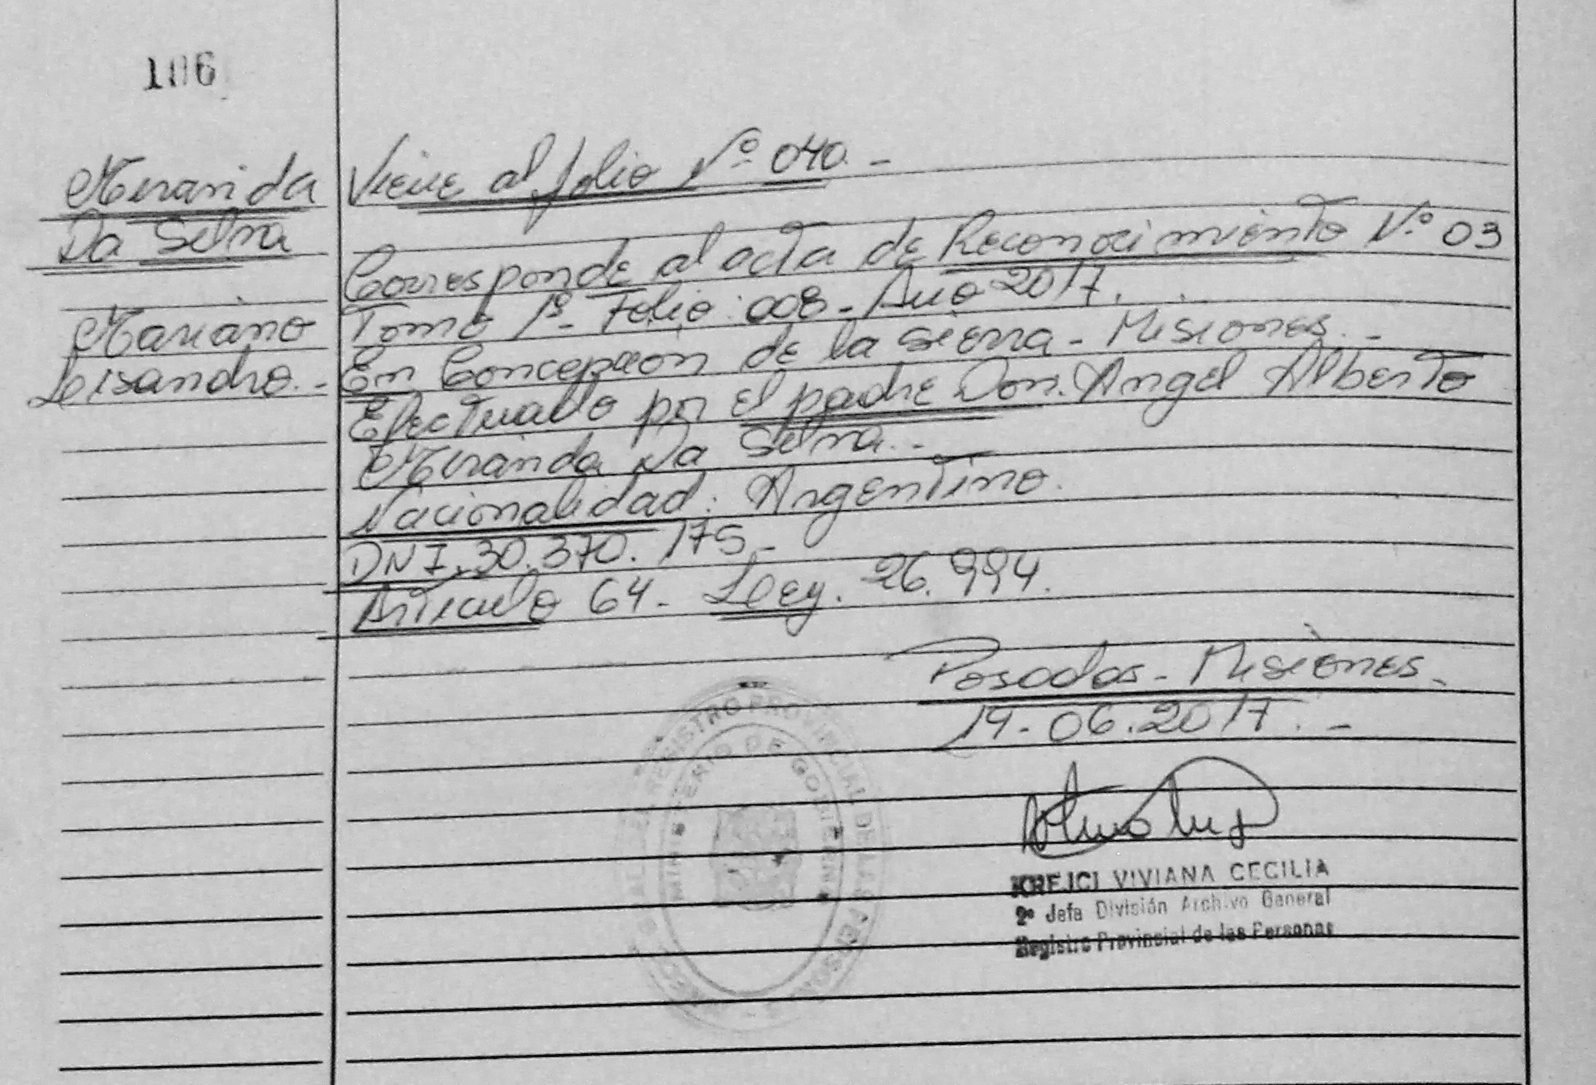 106
Miranda
Da Silva
Mariano
Lisandro.-
Viene al folio Nº 040.-
Corresponde al acta de Reconocimiento Nº 03
Tomo 1º- Folio: 008- Año 2017.
En Concepción de la Sierra- Misiones.-
Efectuado por el padre Don. Angel Alberto
Miranda Da Silva.-
Nacionalidad: Argentino.
DNI. 30.370.175-
Articulo 64- Ley. 26.994.
Posadas- Misiones-
19-06.2017.-
KREJCI VIVIANA CECILIA
2º Jefa División Archivo General
Registro Provincial de las Personas
REGISTRO PROVINCIAL DE LAS PERSONAS
MINISTERIO DE GOBIERNO